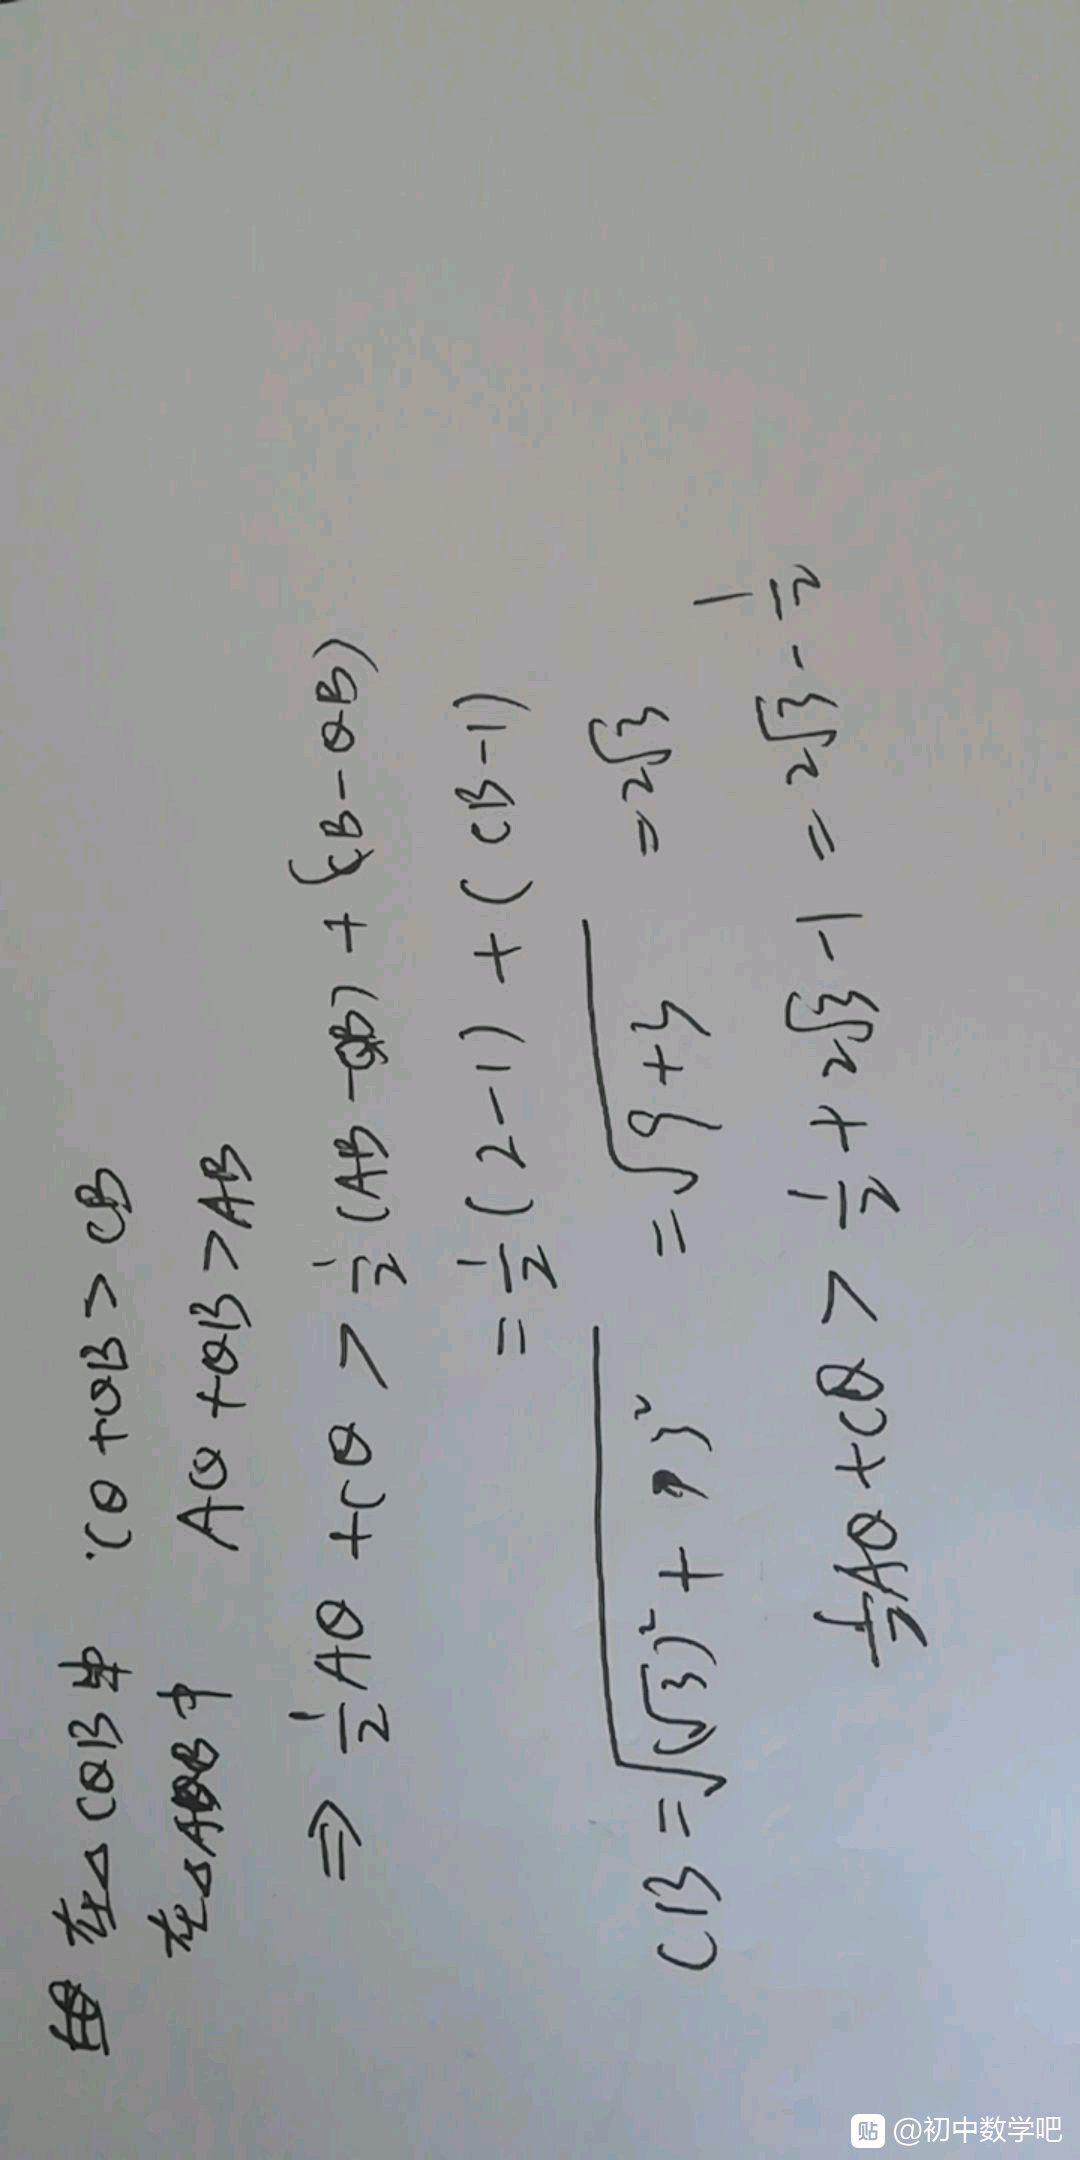 在△CQB中 CQ+QB>CB
在△AQB中 AQ+QB>AB
⇒ 1/2 AQ+CQ > 1/2 (AB-QB)+(CB-QB)
= 1/2 (2-1)+(CB-1)
CB=√((√3)²+3²) =√(9+3) =2√3
1/2 AQ+CQ > 1/2 +2√3-1 =2√3-1/2
贴 @初中数学吧